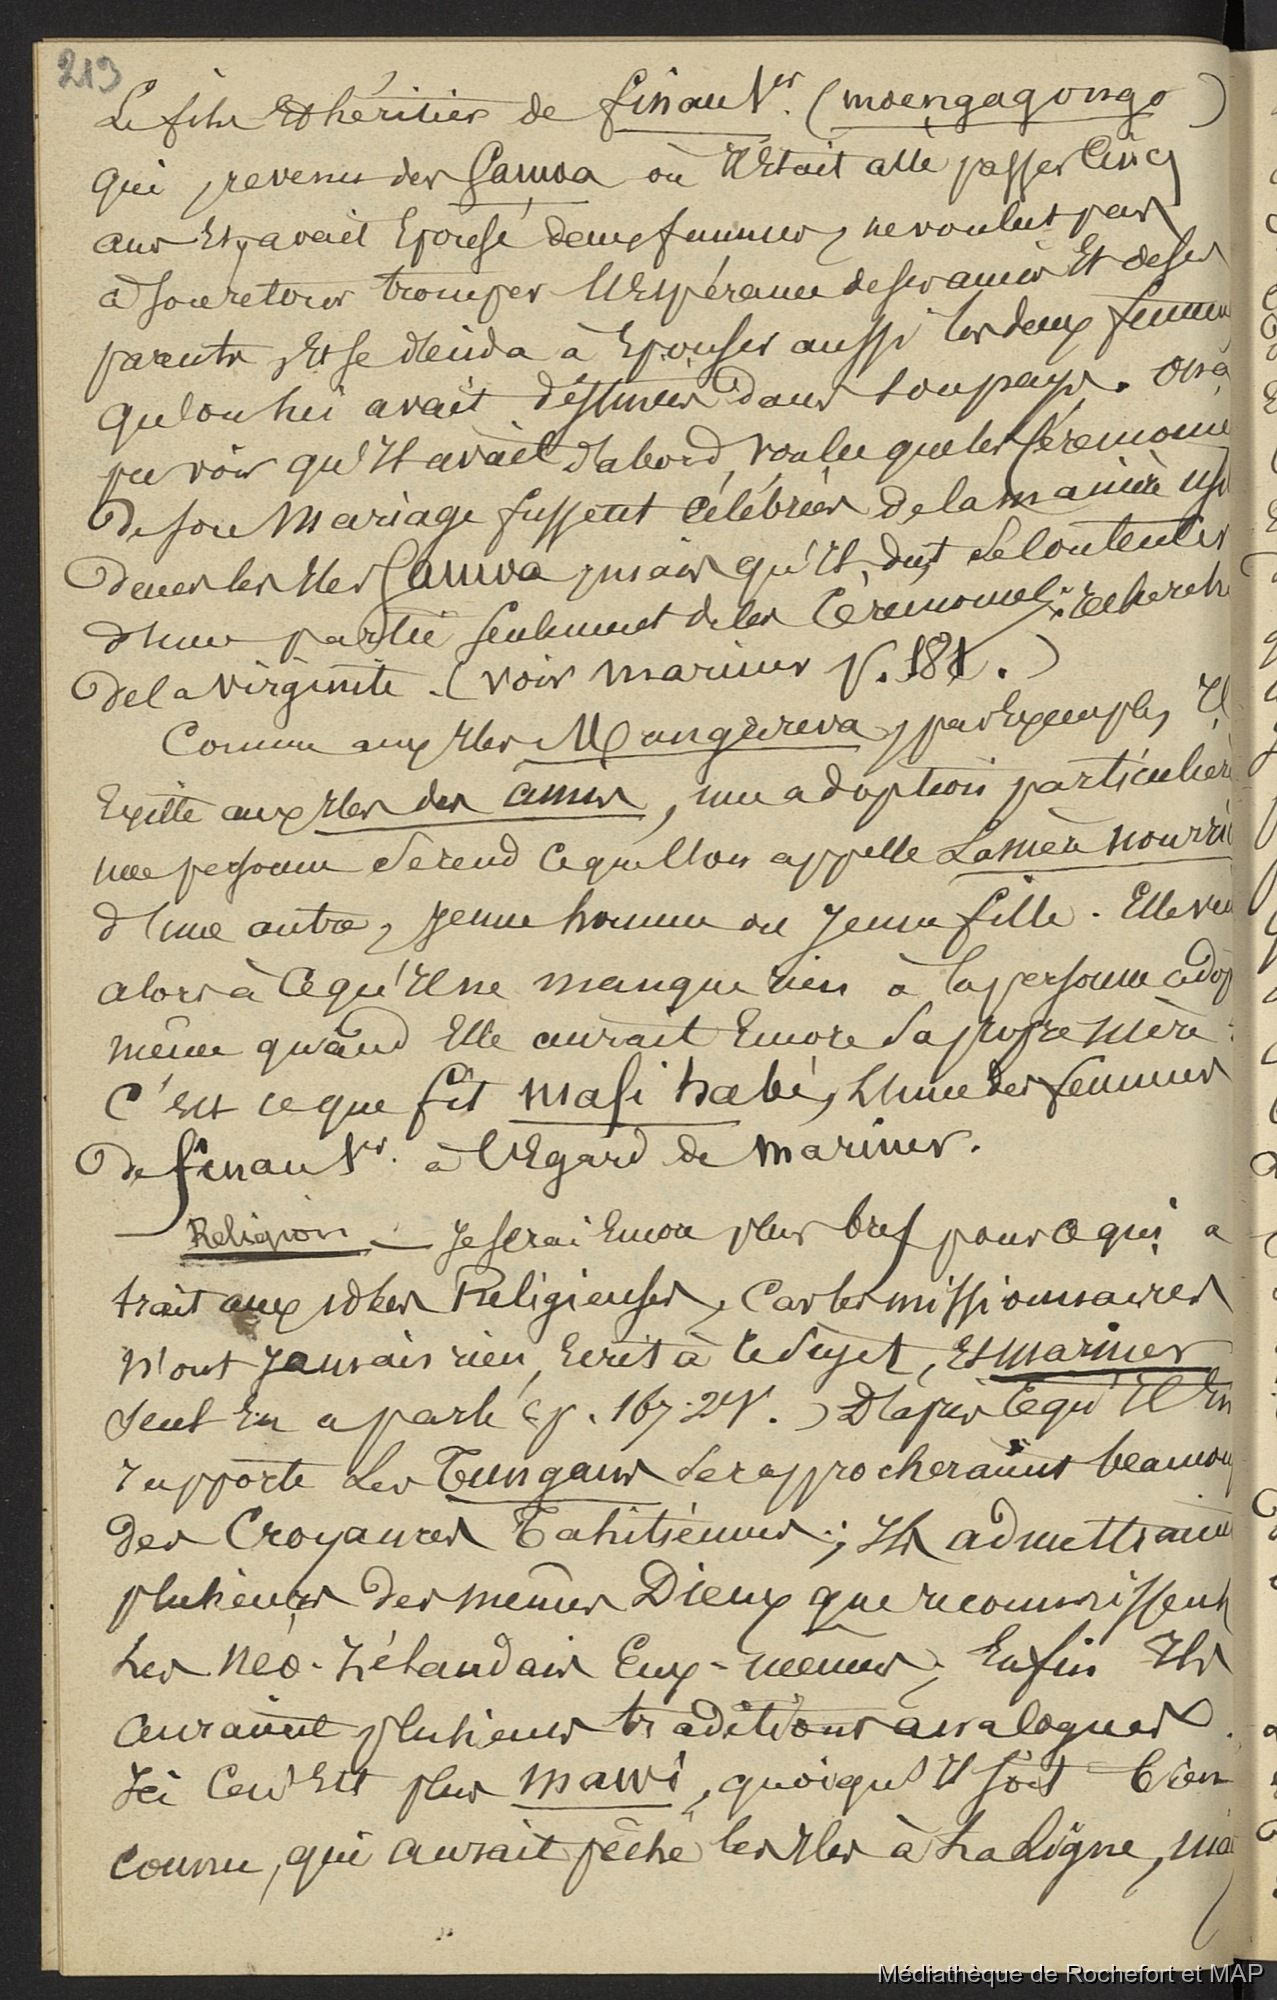 213
Le fils et héritier de finau 1er. (moengagongo)
qui, revenu des Samoa où Il était allé passer Cinq
ans Et y avait Epousé deux femmes, ne voulut pas
à son retour tromper l'Espérance de ses amis Et de ses
parents, Et se décida à Epouser aussi les deux femmes
qu'on lui avait destinées dans son pays. On a
pu voir qu'Il avait d'abord voulu que les Cérémonies
de son Mariage fussent célébrées de la manière usi
dans les Iles Samoa, mais qu'Il dut se Contenter
d'une partie seulement de ces Cérémonies: recherche
de la virginité. (voir mariner p. 181.)
Comme aux Iles Mangareva, par Exemple, Il
Existe aux Iles des amis, une adoption particulière
une personne se rend ce que l'on appelle La mère nourri
d'une autre, jeune homme ou jeune fille. Elle vei
alors à ce qu'Il ne manque rien à la personne adop
même quand Elle aurait Encore sa propre mère:
C'est ce que fit mafi habé, l'une des femmes
de finau 1er. à l'Egard de mariner.
— Religion. — Je serai Encore plus bref pour ce qui a
trait aux idées Religieuses, Car les missionnaires
n'ont jamais rien Ecrit à ce sujet, Et mariner
seul En a parlé (p. 167. 2e V.) D'après ce qu'Il En
rapporte les Tungans se rapprocheraient beaucoup
des Croyances Tahitiennes; Ils admettraient
plusieurs des mêmes Dieux que reconnaissent
les Néo-Zélandais Eux-mêmes; Enfin Ils
auraient plusieurs traditions analogues.
Ici Ce n'est plus mawi, quoiqu'Il soit bien
connu, qui aurait pêché les Iles à la ligne, mai
Médiathèque de Rochefort et MAP